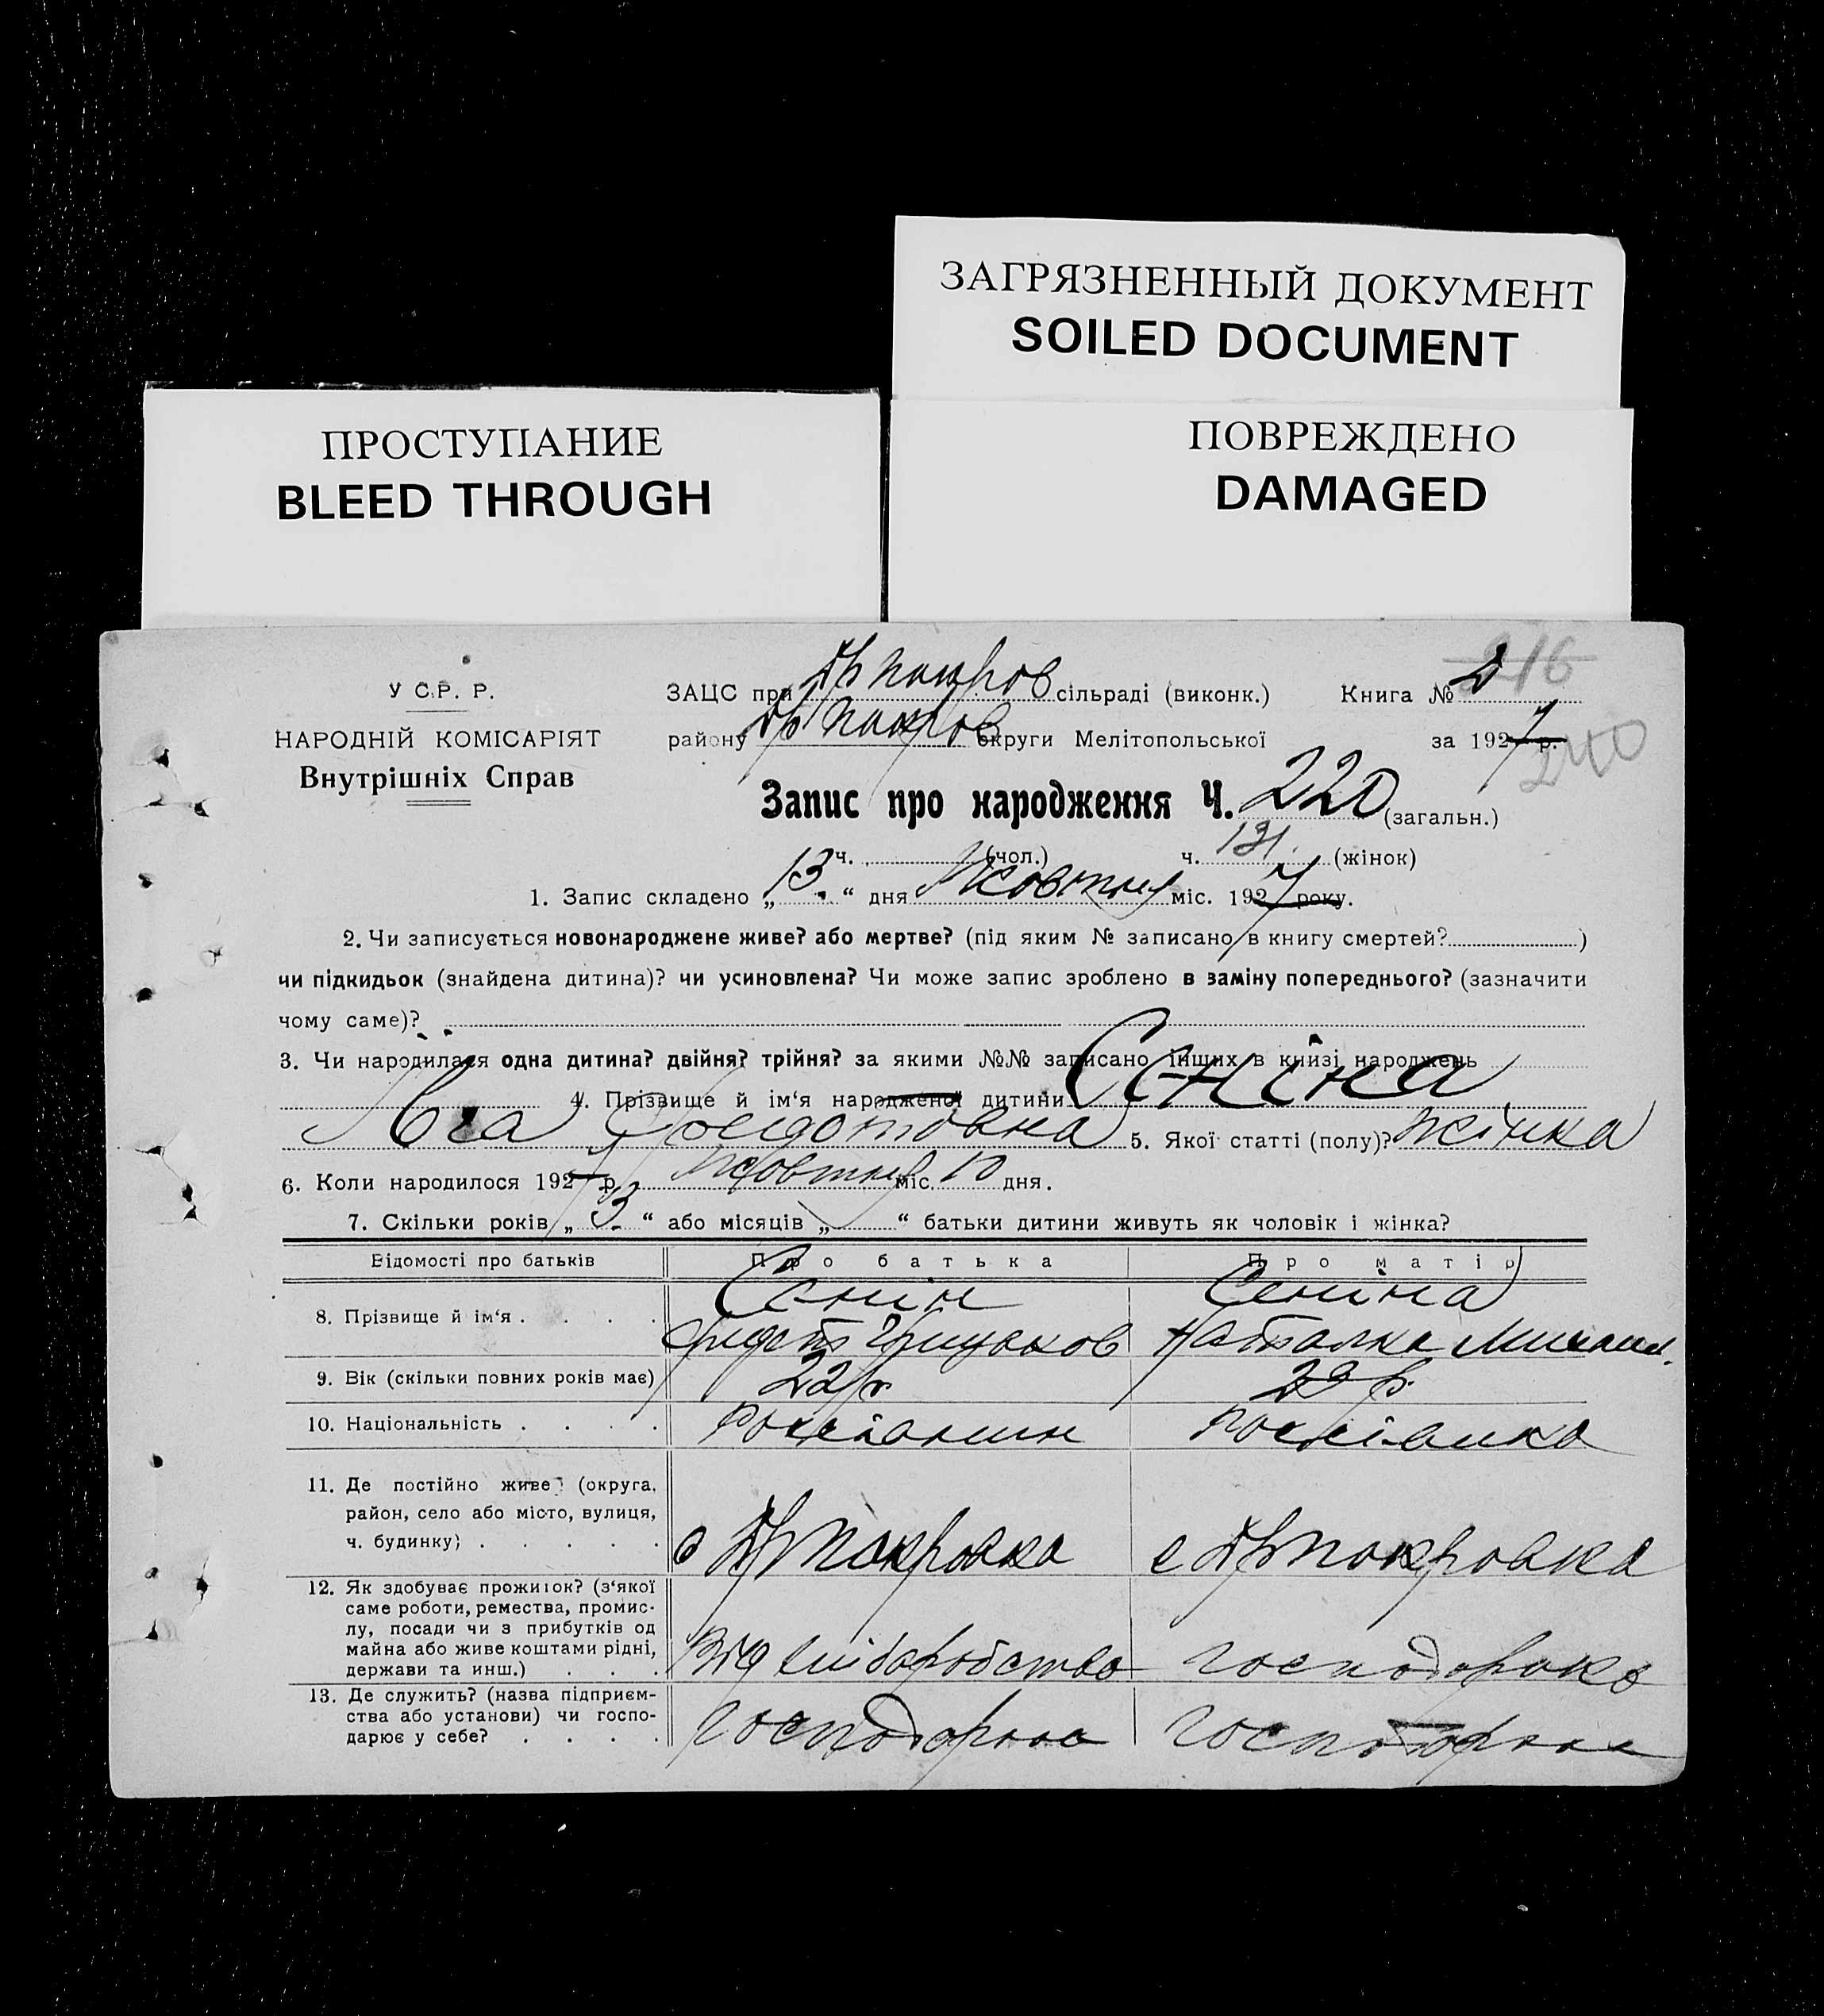 ЗАГРЯЗНЕННЫЙ ДОКУМЕНТ
SOILED DOCUMENT
ПРОСТУПАНИЕ
BLEED THROUGH
ПОВРЕЖДЕНО
DAMAGED
У С.Р. Р.
НАРОДНІЙ КОМІСАРІЯТ
Внутрішніх Справ
216
ЗАЦС при сільраді (виконк.) Книга №
району округи Мелітопольської за 1927 р.
240
Запис про народження Ч. 220 (загальн.)
ч. (чол.) ч. 131 (жінок)
1. Запис складено „13“ дня Жовтня міс. 1927 року.
2. Чи записується новонароджене живе? або мертве? (під яким № записано в книгу смертей? )
чи підкидьок (знайдена дитина)? чи усиновлена? Чи може запис зроблено в заміну попереднього? (зазначити
чому саме)?
3. Чи народилася одна дитина? двійня? трійня? за якими №№ записано інших в книзі народжень
4. Прізвище й ім‘я народженої дитини Сєніна
5. Якої статті (полу)? жінка
6. Коли народилося 1927 р. Жовтня міс. 10 дня.
7. Скільки років „3“ або місяців „ “ батьки дитини живуть як чоловік і жінка?
Відомості про батьків Про батька Про матір
8. Прізвище й ім‘я . . . . Сенін Сеніна
Наталка
9. Вік (скільки повних років має) 22 р. 23 р.
10. Національність . . . . Россіанин Россіанка
11. Де постійно живе? (округа,
район, село або місто, вулиця,
ч. будинку) . . . . . с Др Покровка с Др Покровка
12. Як здобуває прожиток? (з‘якої
саме роботи, ремества, промис-
лу, посади чи з прибутків од
майна або живе коштами рідні,
держави та инш.) . . . Від хліборобства
13. Де служить? (назва підприєм-
ства або установи) чи госпо-
дарює у себе? . . . .